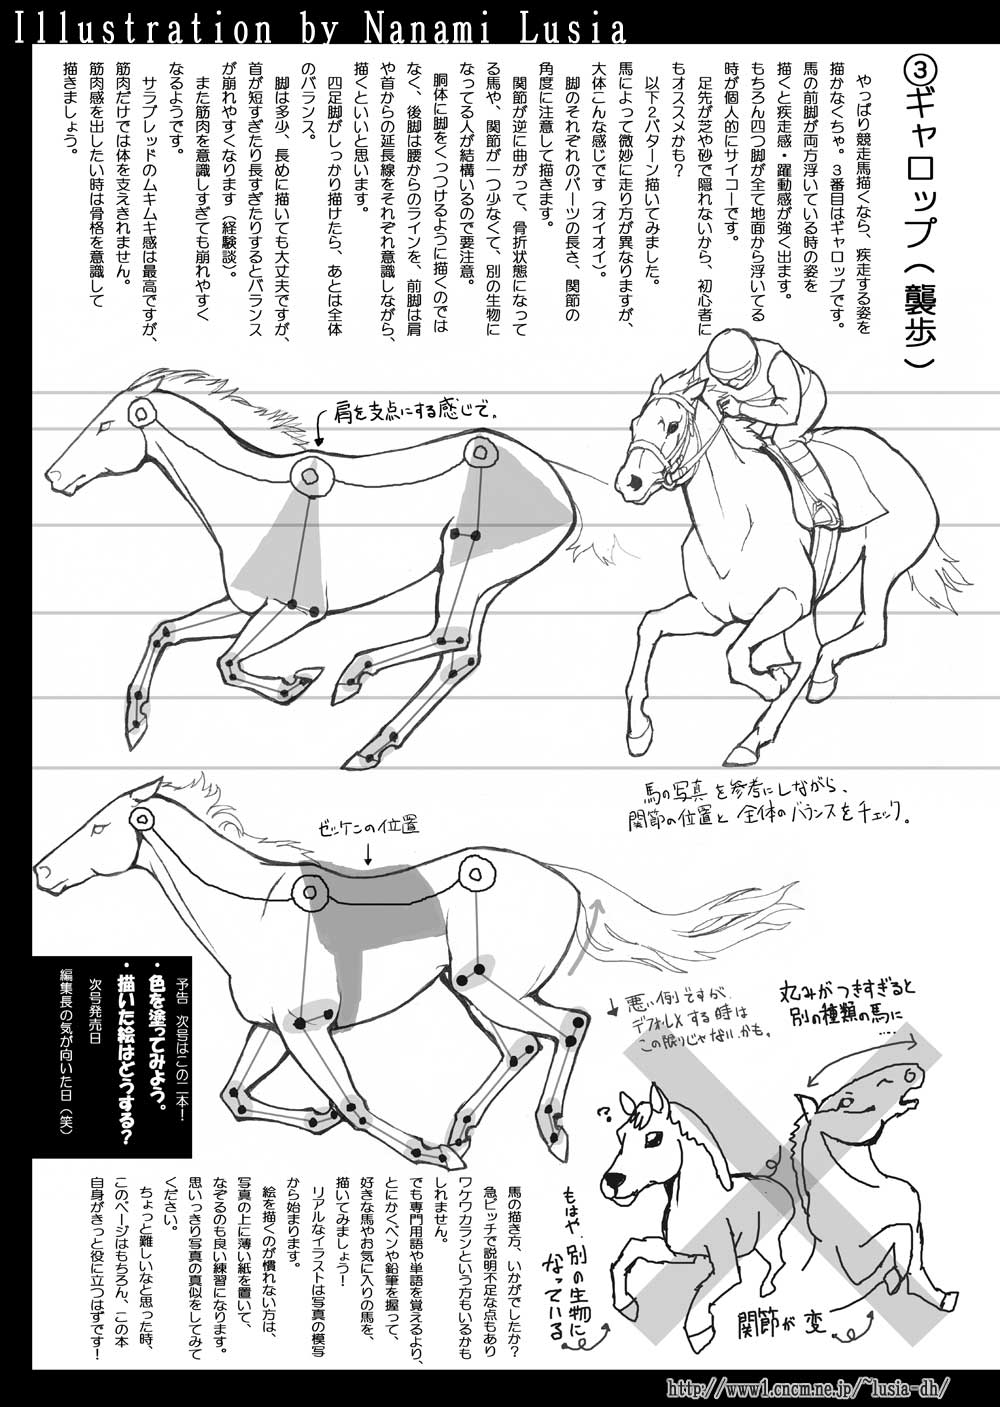 Illustration by Nanami Lusia
③ギャロップ（襲歩）
やっぱり競走馬描くなら、疾走する姿を
描かなくちゃ。３番目はギャロップです。
馬の前脚が両方浮いている時の姿を
描くと疾走感・躍動感が強く出ます。
もちろん四つ脚が全て地面から浮いてる
時が個人的にサイコーです。
足先が芝や砂で隠れないから、初心者に
もオススメかも？
以下２パターン描いてみました。
馬によって微妙に走り方が異なりますが、
大体こんな感じです（オイオイ）。
脚のそれぞれのパーツの長さ、関節の
角度に注意して描きます。
関節が逆に曲がって、骨折状態になって
る馬や、関節が一つ少なくて、別の生物に
なってる人が結構いるので要注意。
胴体に脚をくっつけるように描くのでは
なく、後脚は腰からのラインを、前脚は肩
や首からの延長線をそれぞれ意識しながら、
描くといいと思います。
四足脚がしっかり描けたら、あとは全体
のバランス。
脚は多少、長めに描いても大丈夫ですが、
首が短すぎたり長すぎたりするとバランス
が崩れやすくなります（経験談）。
また筋肉を意識しすぎても崩れやすく
なるようです。
サラブレッドのムキムキ感は最高ですが、
筋肉だけでは体を支えきれません。
筋肉感を出したい時は骨格を意識して
描きましょう。
肩を支点にする感じで。
馬の写真を参考にしながら、
関節の位置と全体のバランスをチェック。
ゼッケンの位置
予告 次号はこの二本！
・色を塗ってみよう。
・描いた絵はどうする？
次号発売日
編集長の気が向いた日（笑）
↓悪い例ですが、
デフォルメする時は
この限りじゃないかも。
丸みがつきすぎると
別の種類の馬に
……
?
もはや、別の生物に
なっている
関節が変
馬の描き方、いかがでしたか？
急ピッチで説明不足な点もあり
ワケワカランという方もいるかも
しれません。
でも専門用語や単語を覚えるより、
とにかくペンや鉛筆を握って、
好きな馬やお気に入りの馬を、
描いてみましょう！
リアルなイラストは写真の模写
から始まります。
絵を描くのが慣れない方は、
写真の上に薄い紙を置いて、
なぞるのも良い練習になります。
思いっきり写真の真似をしてみて
ください。
ちょっと難しいなと思った時、
このページはもちろん、この本
自身がきっと役に立つはずです！
http://www1.cncm.ne.jp/~lusia-dh/